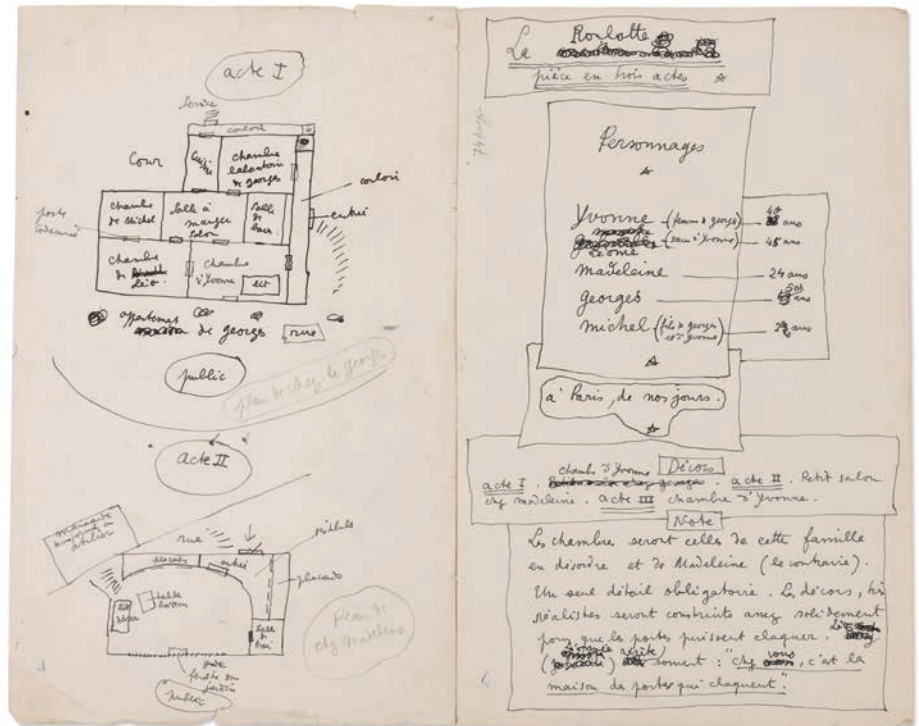 acte I
Service
couloir
Cour
Cuisine
chambre
laboratoire
de georges
couloir
entrée
porte
condamnée
chambre
de Michel
Salle à
manger
Salon
Salle
de
bain
chambre
de Léo.
chambre
d'Yvonne
lit
appartement de georges
public
plan de chez les georges
acte II
mansarde
transformée en
atelier
rue
entrée
vestibule
placards
table
lit
divan
Salle de
bain
fenêtre sur
jardin
Public
Plan de
chez Madeleine
La Roulotte
pièce en trois actes
Personnages
Yvonne (femme de georges) ans
Léonie (sœur d'Yvonne) 45 ans
madeleine 24 ans
georges 50 ans
michel (fils de georges et d'Yvonne) ans
à Paris, de nos jours.
Décors
chambre d'Yvonne
acte I. acte II. Petit salon
chez madeleine. acte III chambre d'Yvonne.
Note
Les chambres seront celles de cette famille
en désordre et de Madeleine (le contraire).
Un seul détail obligatoire. Les décors, très
réalistes seront construits assez solidement
pour que les portes puissent claquer. Léo
répète souvent : "chez vous, c'est la
maison des portes qui claquent".